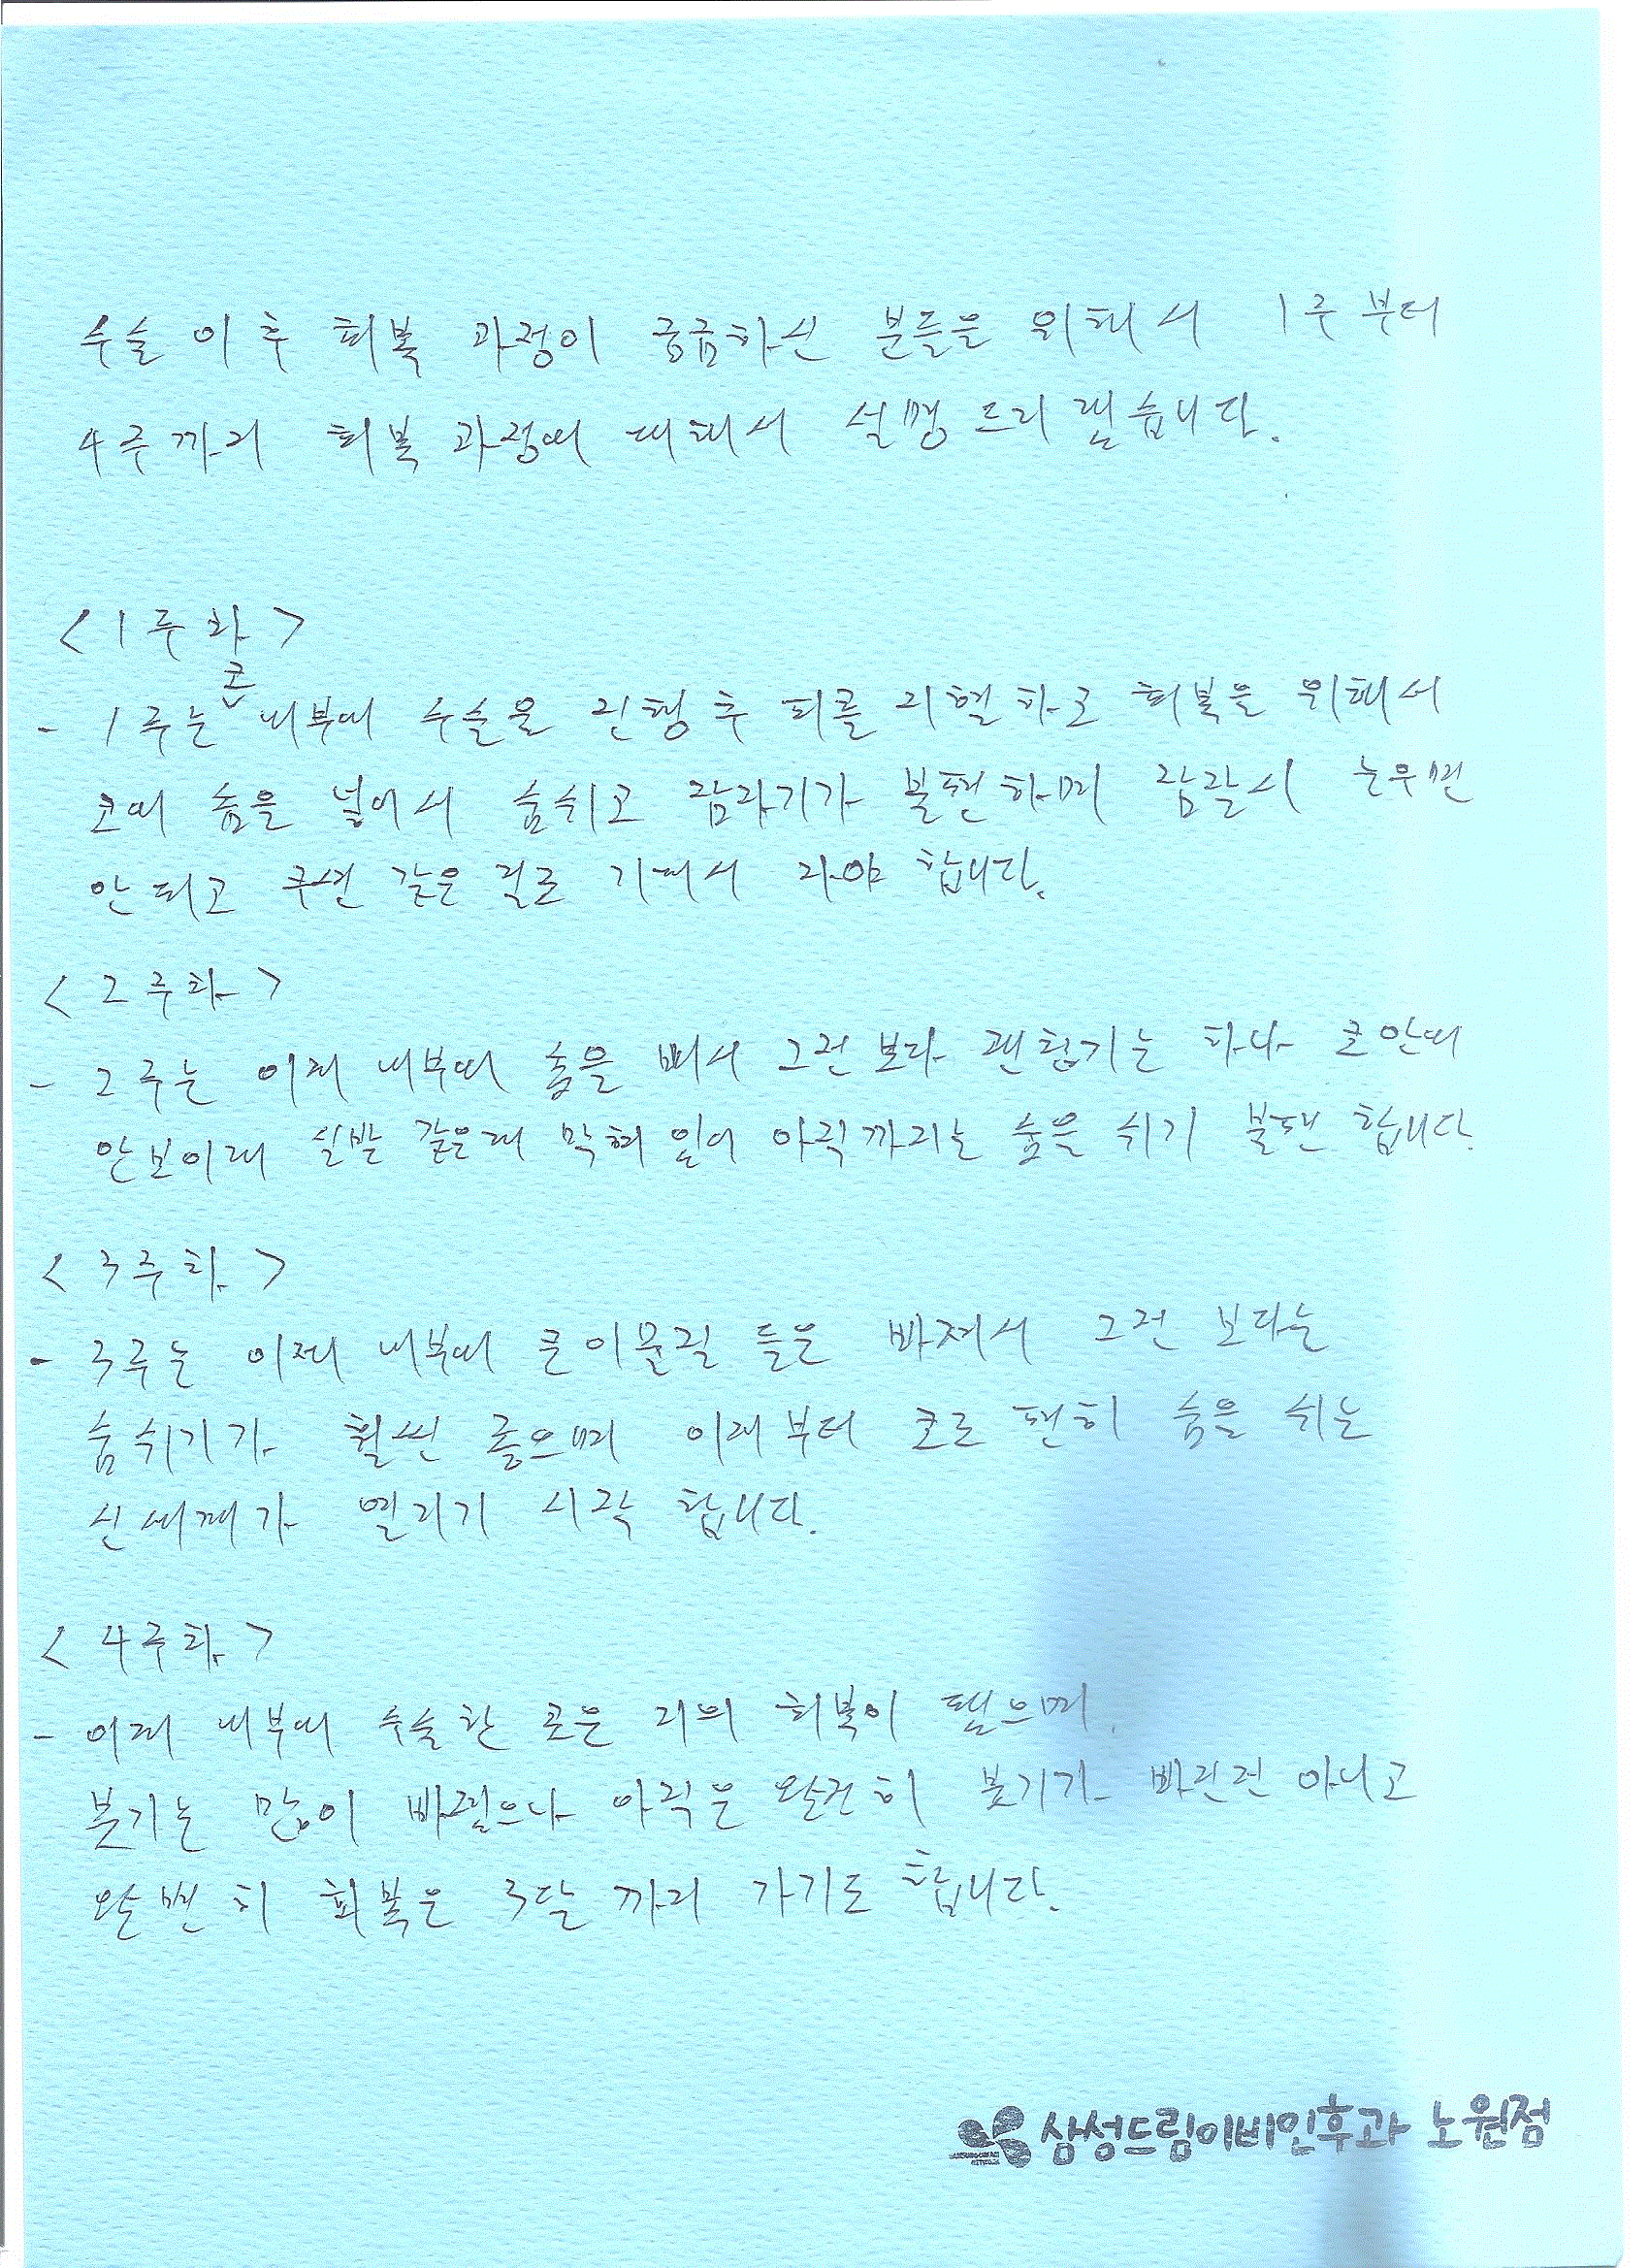 수술 이후 회복 과정이 궁금하신 분들을 위해서 1주부터
4주까지 회복 과정에 대해서 설명 드리겠습니다.
<1주차>
- 1주는 코 내부에 수술을 진행 후 피를 지혈하고 회복을 위해서
코에 솜을 넣어서 숨쉬고 잠자기가 불편하며 잠잘시 누우면
안되고 쿠션 같은 걸로 기대서 자야 합니다.
<2주차>
- 2주는 이제 내부에 솜을 빼서 그전 보다 괜찮기는 하나 코안에
안보이래 실밥 같은게 막혀 있어 아직까지는 숨을 쉬기 불편 합니다.
<3주차>
- 3주는 이제 내부에 큰 이물질 들은 빠져서 그전 보다는
숨쉬기가 훨씬 좋으며 이제부터 코로 편히 숨을 쉬는
신세계가 열리기 시작 합니다.
<4주차>
- 이제 내부에 수술한 곳은 거의 회복이 됐으며,
붓기는 많이 빠졌으나 아직은 완전히 붓기가 빠진건 아니고
완벽히 회복은 3달 까지 가기도 합니다.
삼성드림이비인후과 노원점